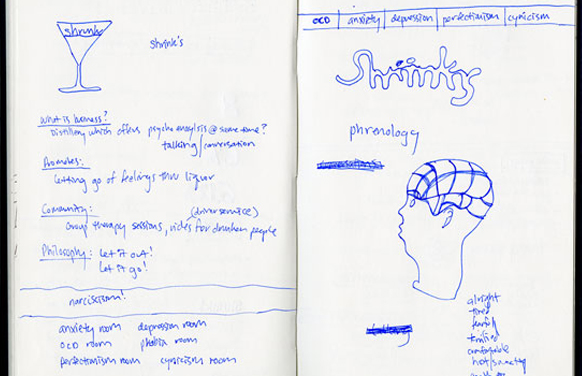 shrinks
shrink's
What is business?
Distillery which offers psychoanalysis @ same time?
talking/conversation
Promotes:
letting go of feelings thru liquor
Community:
(driver service)
Group therapy sessions, rides for drunken people
Philosophy: Let it out!
Let it go!
narcissism!
anxiety room depression room
OCD room phobia room
perfectionism room cynicism room
OCD | anxiety | depression | perfectionism | cynicism
Shrinks
phrenology
alright
tired
fearful
comfortable